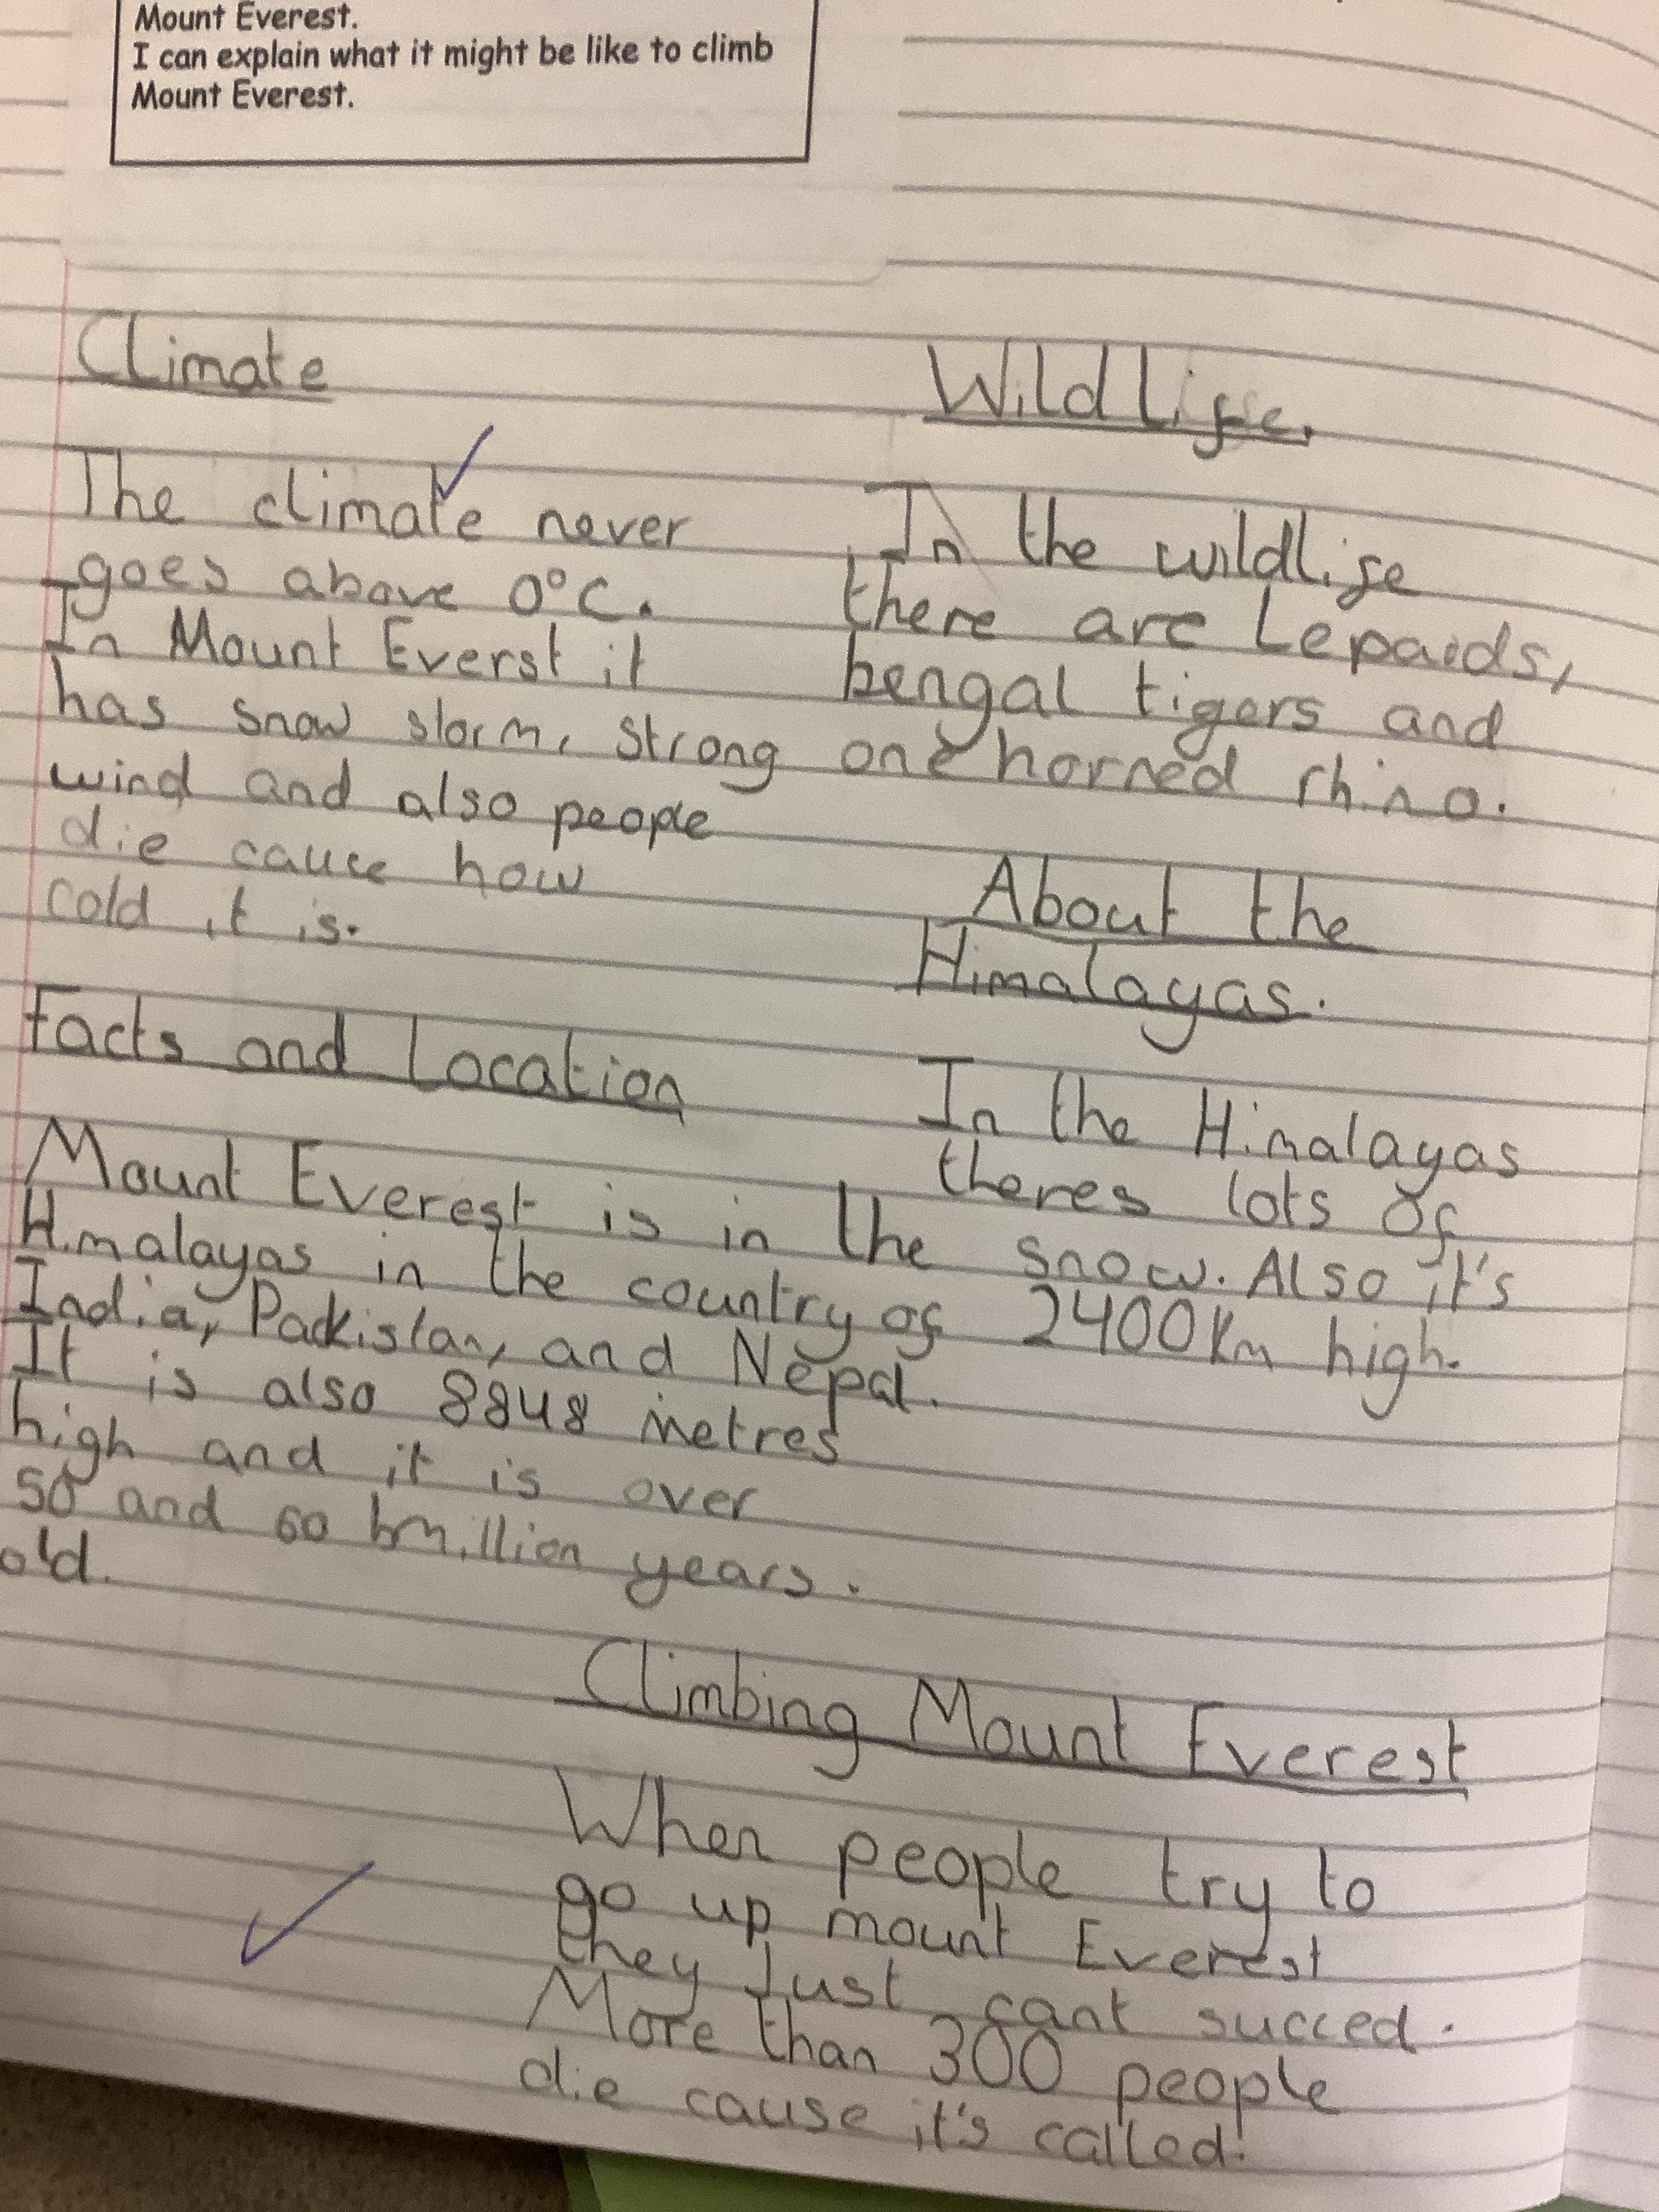 Mount Everest.
I can explain what it might be like to climb
Mount Everest.
Climate
The climate never
goes above 0°C.
In Mount Everst it
has snow storm, strong
wind and also people
die cause how
cold it is.
Facts and Location
Mount Everest is in the
Himalayas in the country of
India, Packistan, and Nepal.
It is also 8848 metres
high and it is over
50 and 60 million years.
old.
Wildlife.
In the wildlife
there are Lepaids,
bengal tigers and
one horned rhino.
About the
Himalayas.
In the Himalayas
theres lots of
snow. Also it's
2400Km high.
Climbing Mount Everest
When people try to
go up mount Everest
they Just cant succed.
More than 300 people
die cause it's called!